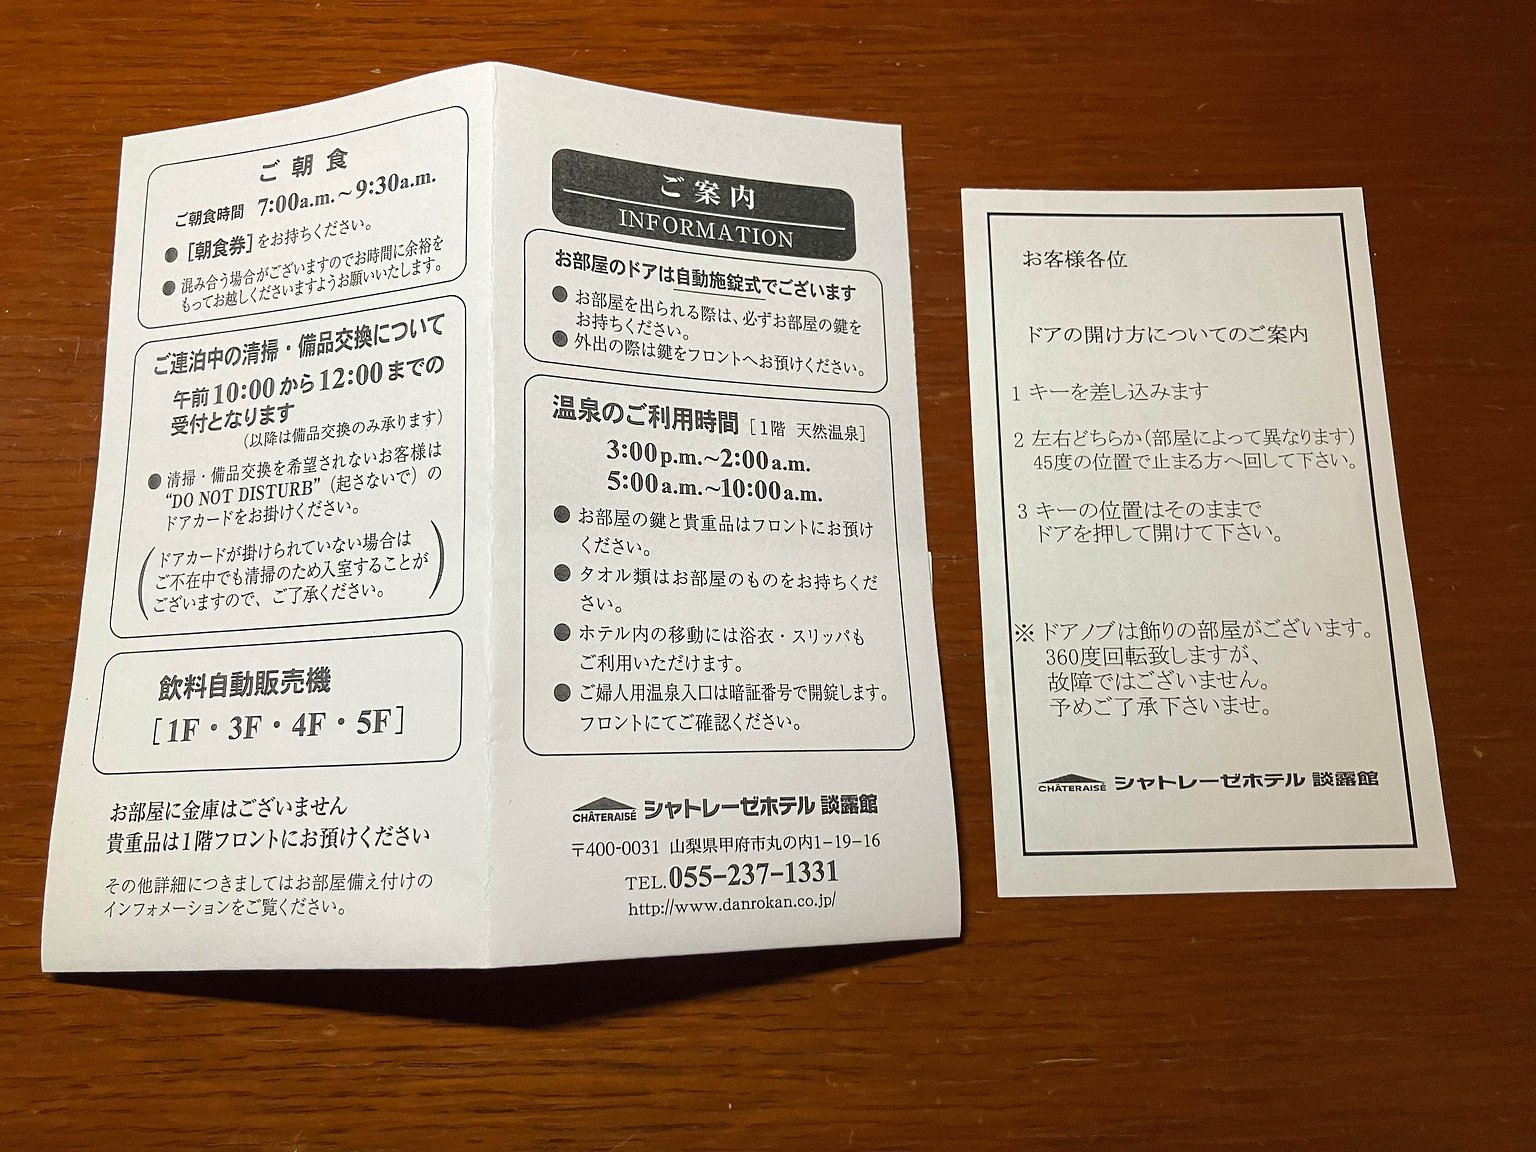 ご朝食
ご朝食時間 7:00a.m.～9:30a.m.
● [朝食券]をお持ちください。
● 混み合う場合がございますのでお時間に余裕を
もってお越しくださいますようお願いいたします。
ご連泊中の清掃・備品交換について
午前10:00から12:00までの
受付となります
(以降は備品交換のみ承ります)
● 清掃・備品交換を希望されないお客様は
“DO NOT DISTURB”(起さないで)の
ドアカードをお掛けください。
(ドアカードが掛けられていない場合は
ご不在中でも清掃のため入室することが
ございますので、ご了承ください。)
飲料自動販売機
[1F・3F・4F・5F]
お部屋に金庫はございません
貴重品は1階フロントにお預けください
その他詳細につきましてはお部屋備え付けの
インフォメーションをご覧ください。
ご案内
INFORMATION
お部屋のドアは自動施錠式でございます
● お部屋を出られる際は、必ずお部屋の鍵を
お持ちください。
● 外出の際は鍵をフロントへお預けください。
温泉のご利用時間 [1階 天然温泉]
3:00p.m.～2:00a.m.
5:00a.m.～10:00a.m.
● お部屋の鍵と貴重品はフロントにお預け
ください。
● タオル類はお部屋のものをお持ちくだ
さい。
● ホテル内の移動には浴衣・スリッパも
ご利用いただけます。
● ご婦人用温泉入口は暗証番号で開錠します。
フロントにてご確認ください。
CHÂTERAISÉ シャトレーゼホテル 談露館
〒400-0031 山梨県甲府市丸の内1-19-16
TEL.055-237-1331
http://www.danrokan.co.jp/
お客様各位
ドアの開け方についてのご案内
1 キーを差し込みます
2 左右どちらか(部屋によって異なります)
45度の位置で止まる方へ回して下さい。
3 キーの位置はそのままで
ドアを押して開けて下さい。
※ ドアノブは飾りの部屋がございます。
360度回転致しますが、
故障ではございません。
予めご了承下さいませ。
CHÂTERAISÉ シャトレーゼホテル 談露館